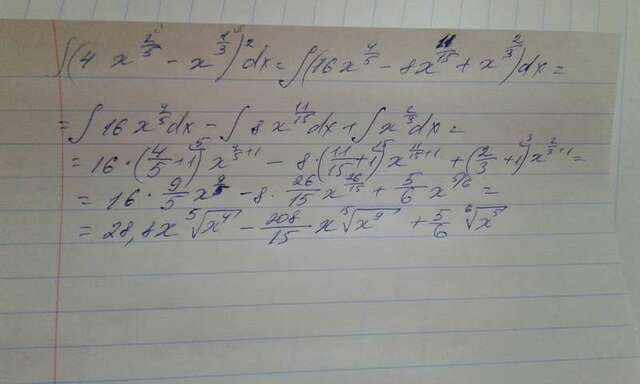 ∫(4 x^(2/5) - x^(1/3))² dx = ∫(16x^(4/5) - 8x^(11/15) + x^(2/3))dx =
= ∫16x^(4/5)dx - ∫8x^(11/15)dx + ∫x^(2/3)dx =
= 16·(4/5+1)x^(4/5+1) - 8·(11/15+1)x^(11/15+1) + (2/3+1)x^(2/3+1) =
= 16·9/5 x^(9/5) - 8·26/15 x^(26/15) + 5/6 x^(5/6) =
= 28,8x ⁵√x⁴ - 208/15 x ¹⁵√x⁹ + 5/6 ⁶√x⁵